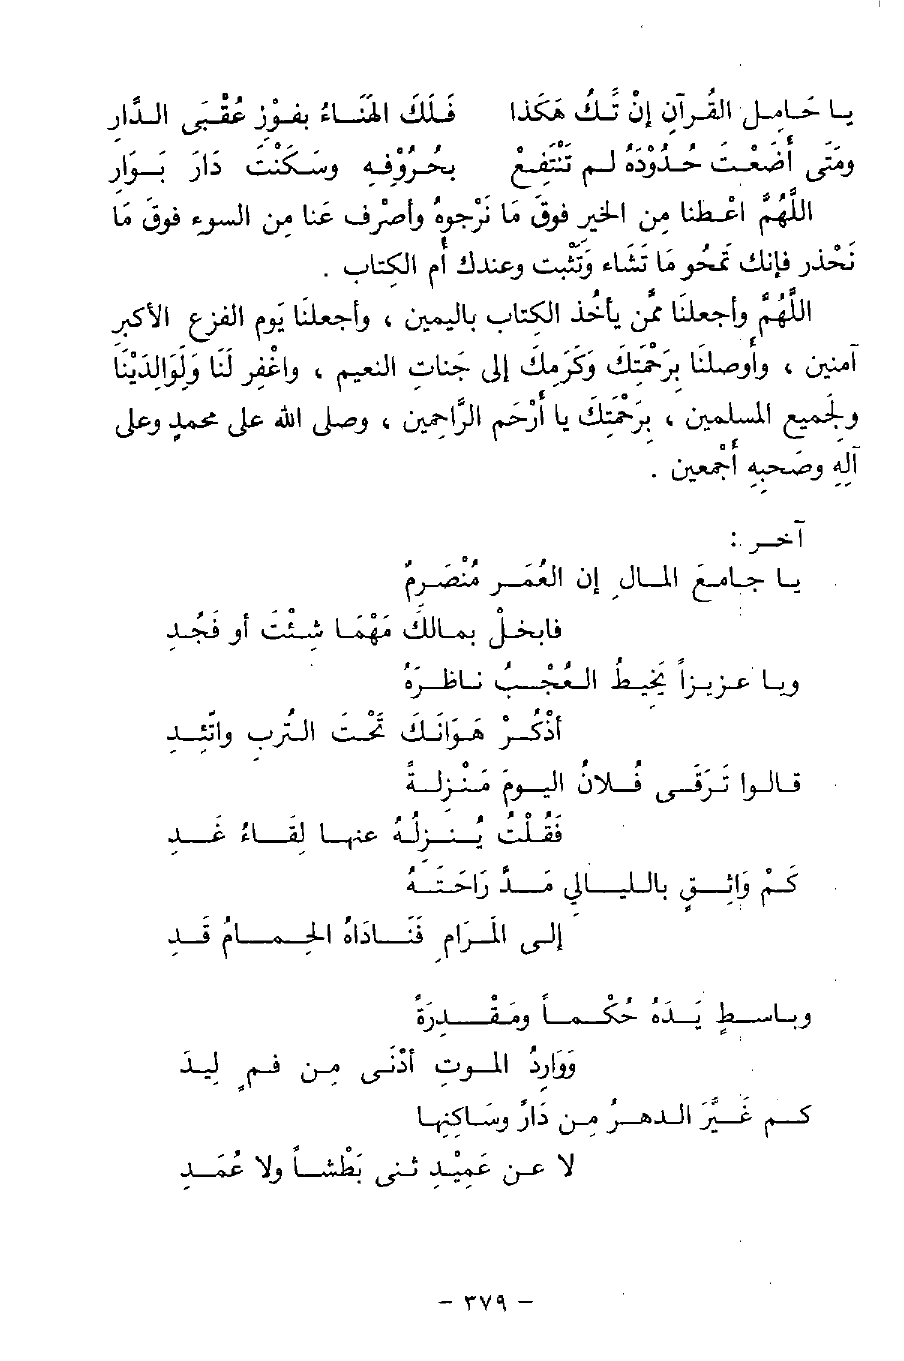 يا حَامِل القُرآنِ إنْ تَكُ هَكَذا فَلَكَ الهَنَاءُ بِفَوْزِ عُقْبَى الدَّارِ
ومَتَى أَضَعْتَ حُدُودَهُ لم تَنْتَفِعْ بِحُرُوْفِهِ وسَكَنْتَ دَارَ بَوَارِ
اللَّهُمَّ أَعْطِنا مِن الخيرِ فوقَ مَا نَرْجُوهُ وأصْرِف عَنا مِن السوءِ فوقَ مَا
نَحْذر فإنك تمحُو مَا تَشَاء وَتُثْبِت وعندك أم الكتاب .
اللَّهُمَّ وأجعلنَا مِمَّن يأخُذ الكتاب باليمين ، وأجعلنَا يَوم الفزع الأكبر
آمنين ، وأوصِلنَا بِرَحْمَتِكَ وَكَرَمِكَ إلى جَنات النعيم ، واغْفِر لَنَا وَلِوَالِدَيْنَا
ولجميع المسلمين ، بِرَحْمَتِكَ يا أَرْحَم الرَّاحِمِين ، وصلى الله على محمدٍ وعلى
آلِهِ وصَحبِهِ أَجْمعين .
آخر :
يا جامِعَ المالِ إن العُمْرَ مُنْصَرِمٌ
فابخلْ بمالكَ مَهْمَا شِئْتَ أو فَجُدِ
ويا عزيزاً يَخِيطُ العُجْبُ ناظِرَهُ
أُذْكُرْ هَوَانَكَ تَحْتَ التُربِ واتَّئِدِ
قالوا تَرَقَى فُلانُ اليومَ مَنْزِلةً
فَقُلْتُ يُنزِلُهُ عنها لِقَاءُ غَدِ
كَمْ وَاثِقٍ بالليالي مَدَّ رَاحَتَهُ
إلى المَرَامِ فَنَادَاهُ الحِمَامُ قَدِ
وباسطٍ يَدَهُ حُكْماً ومَقْدِرَةً
وَوَارِدُ الموتِ أَدْنَى مِن فمٍ لِيَدَ
كم غَيَّرَ الدهرُ مِن دَارٍ وسَاكِنِها
لا عن عَمِيْدٍ ثنى بَطْشاً ولا عُمَدِ
– ٣٧٩ –